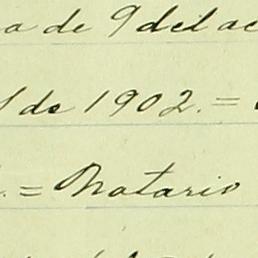 a de 9 del ac
de 1902. =
. = Notario